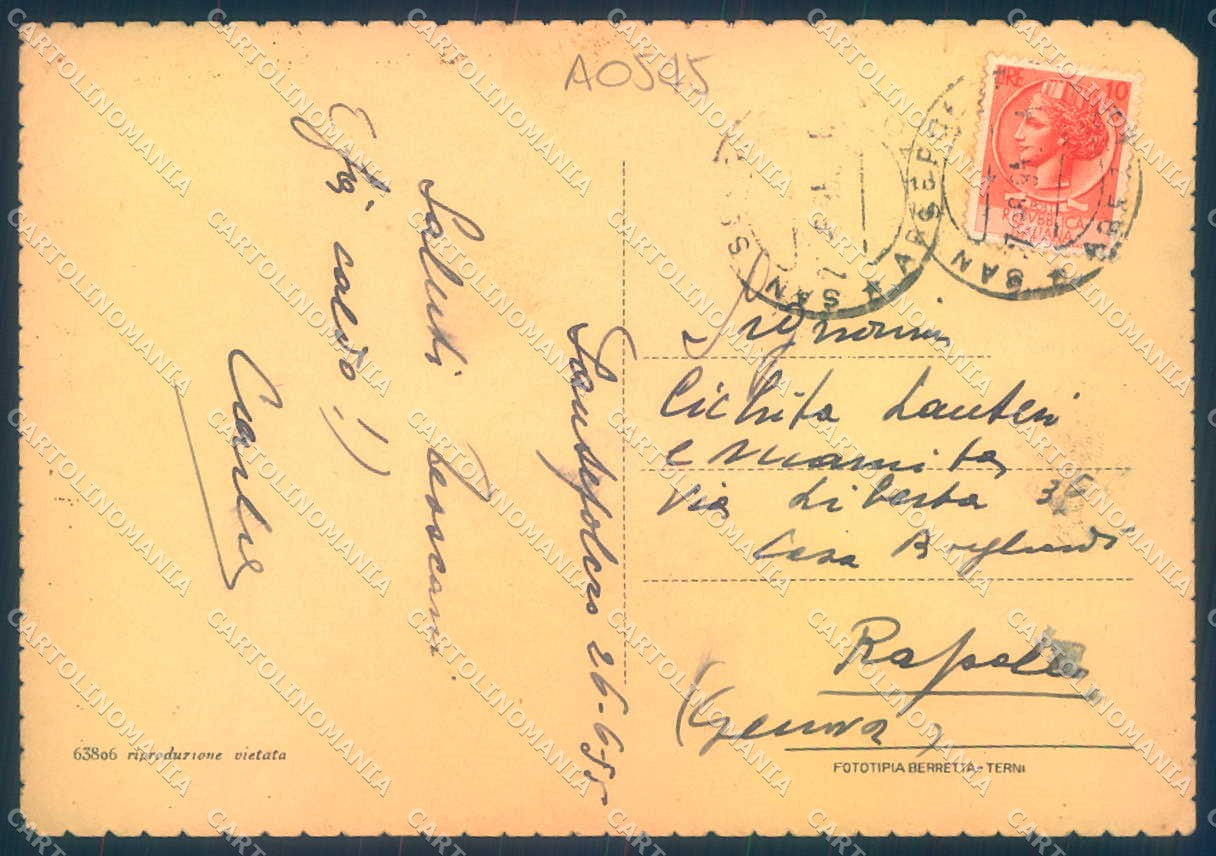 A0545
LIRE 10
POSTE
REPVBBLICA
ITALIANA
SAN
AREZZO
Sansepolcro 26-6-55
Saluti toscani
(già caldo!)
Carlo
Signorine
Cichita Lanteri
e Mamita
Via Libertà 35
Casa
Rapallo
(Genova)
63806 riproduzione vietata
FOTOTIPIA BERRETTA - TERNI
CARTOLINOMANIA